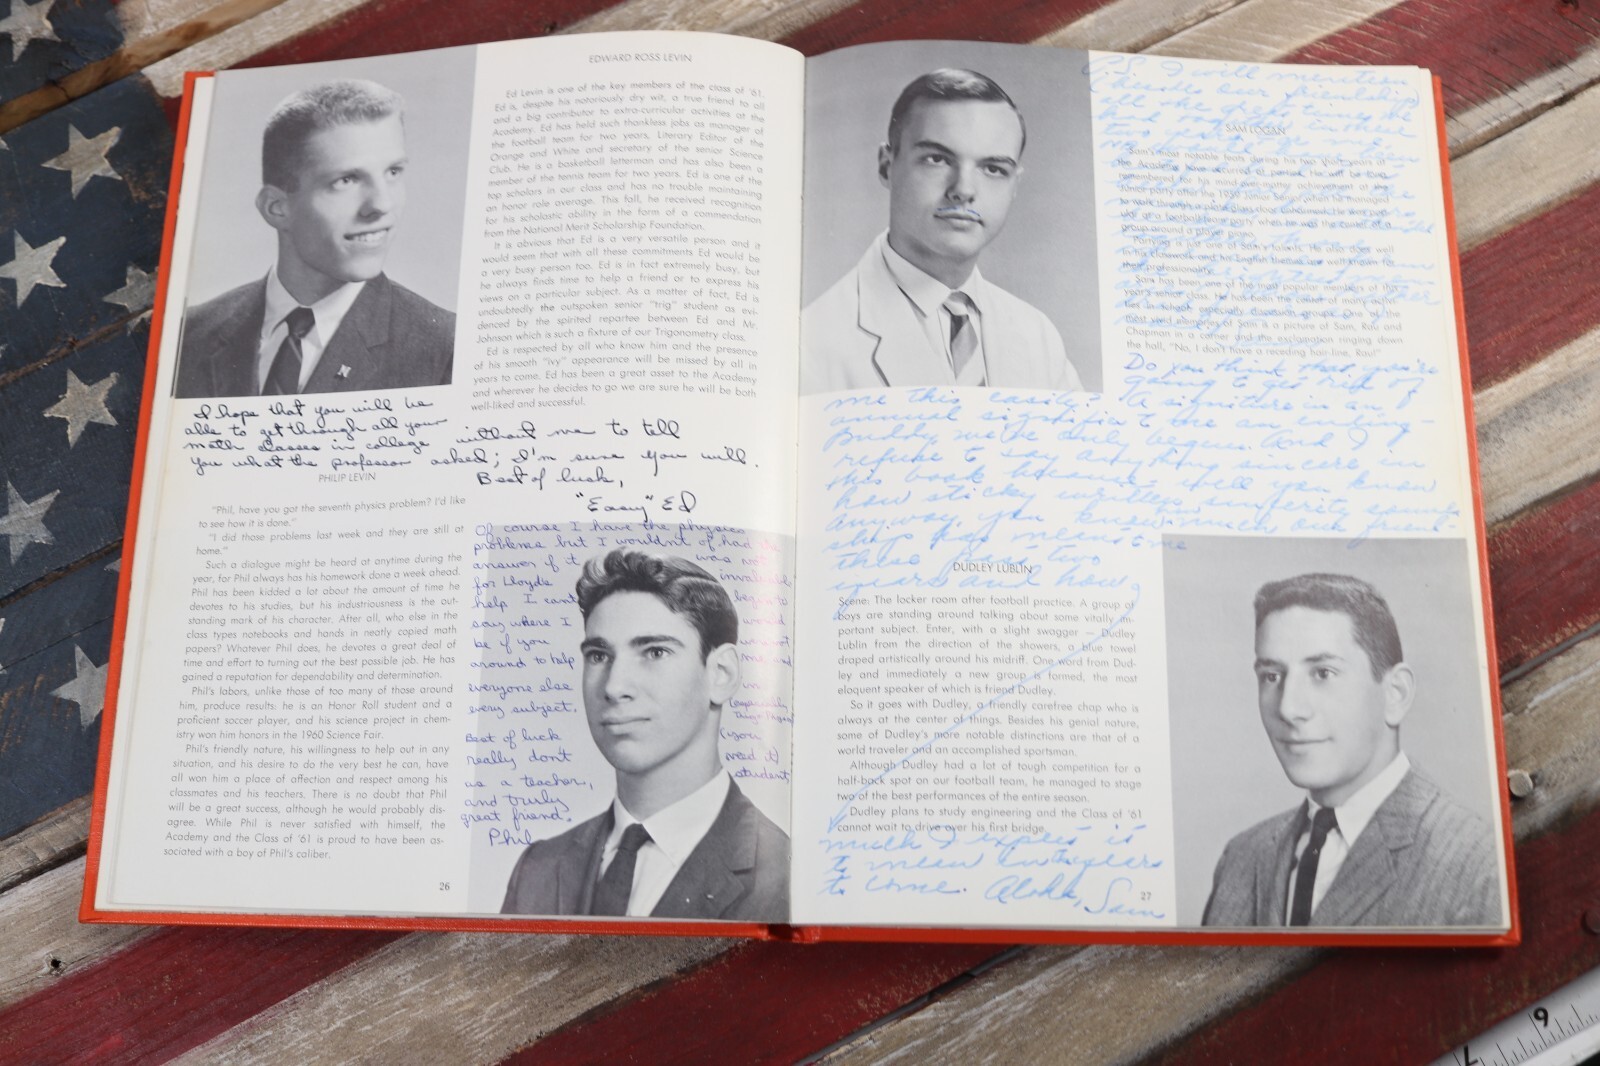 EDWARD ROSS LEVIN
Ed Levin is one of the key members of the class of '61.
Ed is, despite his notoriously dry wit, a true friend to all
and a big contributor to extra-curricular activities at the
Academy. Ed has held such thankless jobs as manager of
the football team for two years, Literary Editor of the
Orange and White and secretary of the senior Science
Club. He is a basketball letterman and has also been a
member of the tennis team for two years. Ed is one of the
top scholars in our class and has no trouble maintaining
an honor role average. This fall, he received recognition
for his scholastic ability in the form of a commendation
from the National Merit Scholarship Foundation.
It is obvious that Ed is a very versatile person and it
would seem that with all these commitments Ed would be
a very busy person too. Ed is in fact extremely busy, but
he always finds time to help a friend or to express his
views on a particular subject. As a matter of fact, Ed is
undoubtedly the outspoken senior "trig" student as evi-
denced by the spirited repartee between Ed and Mr.
Johnson which is such a fixture of our Trigonometry class.
Ed is respected by all who know him and the presence
of his smooth "ivy" appearance will be missed by all in
years to come. Ed has been a great asset to the Academy
and wherever he decides to go we are sure he will be both
well-liked and successful.
I hope that you will be
able to get through all your
math classes in college without me to tell
you what the professor asked; I'm sure you will.
Best of luck,
"Easy" Ed
PHILIP LEVIN
"Phil, have you got the seventh physics problem? I'd like
to see how it is done."
"I did those problems last week and they are still at
home."
Such a dialogue might be heard at anytime during the
year, for Phil always has his homework done a week ahead.
Phil has been kidded a lot about the amount of time he
devotes to his studies, but his industriousness is the out-
standing mark of his character. After all, who else in the
class types notebooks and hands in neatly copied math
papers? Whatever Phil does, he devotes a great deal of
time and effort to turning out the best possible job. He has
gained a reputation for dependability and determination.
Phil's labors, unlike those of too many of those around
him, produce results: he is an Honor Roll student and a
proficient soccer player, and his science project in chem-
istry won him honors in the 1960 Science Fair.
Phil's friendly nature, his willingness to help out in any
situation, and his desire to do the very best he can, have
all won him a place of affection and respect among his
classmates and his teachers. There is no doubt that Phil
will be a great success, although he would probably dis-
agree. While Phil is never satisfied with himself, the
Academy and the Class of '61 is proud to have been as-
sociated with a boy of Phil's caliber.
26
Of course I have the physics
problems but I wouldn't of had the
answer if it was not
for Lloyds invaluable
help I can't begin to
say where I would
be if you weren't
around to help me and
everyone else in
every subject. (especially
Best of luck (you
really don't need it)
as a teacher, student
and truly
great friend.
Phil
P.S. I will mention
(besides our friendship)
all the great times we
had together in these
two years
SAM LOGAN
Sam's most notable feats during his two short years at
the Academy have occurred at parties. He will be long
remembered for his mind-over-matter achievement at the
Junior party after the 1959 Junior-Senior when he managed
to walk through a plate glass door unharmed. He was
at a football party when he was the center of a
group around a player piano.
Partying is just one of Sam's talents. He also does well
in his classwork and his English themes are well-known for
their professionality.
Sam has been one of the most popular members of this
year's senior class. He has been the center of many activi-
ties in school, especially discussion groups. One of the
most vivid memories of Sam is a picture of Sam, Rav, and
Chapman in a corner and the exclamation ringing down
the hall, "No, I don't have a receding hair-line, Rav!"
Do you think that you're
going to get rid of
me this easily? A signature in an
annual signifies to me an ending—
Buddy we've only begun. And I
refuse to say anything sincere in
this book because, well you know
how sticky written sincerity sounds
Anyway, you know how much our friend-
ship has meant to me
these past two
years and how
DUDLEY LUBLIN
Scene: The locker room after football practice. A group of
boys are standing around talking about some vitally im-
portant subject. Enter, with a slight swagger — Dudley
Lublin from the direction of the showers, a blue towel
draped artistically around his midriff. One word from Dud-
ley and immediately a new group is formed, the most
eloquent speaker of which is friend Dudley.
So it goes with Dudley, a friendly carefree chap who is
always at the center of things. Besides his genial nature,
some of Dudley's more notable distinctions are that of a
world traveler and an accomplished sportsman.
Although Dudley had a lot of tough competition for a
half-back spot on our football team, he managed to stage
two of the best performances of the entire season.
Dudley plans to study engineering and the Class of '61
cannot wait to drive over his first bridge.
much I expect it
to mean in the years
to come. Aloha, Sam
27
7 6